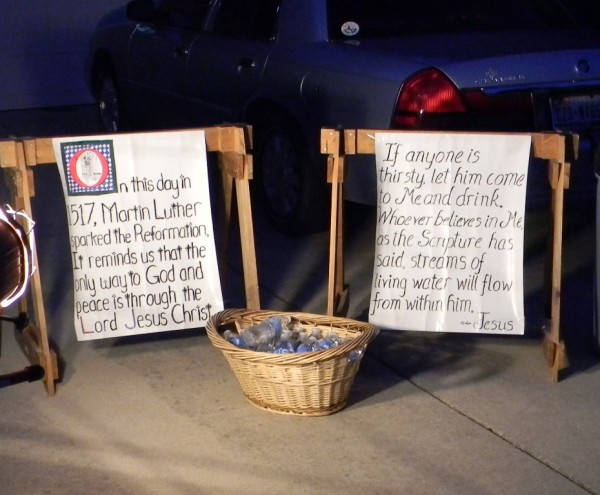 On this day in
1517, Martin Luther
sparked the Reformation.
It reminds us that the
only way to God and
peace is through the
Lord Jesus Christ
If anyone is
thirsty, let him come
to Me and drink.
Whoever believes in Me,
as the Scripture has
said, streams of
living water will flow
from within him.
Jesus